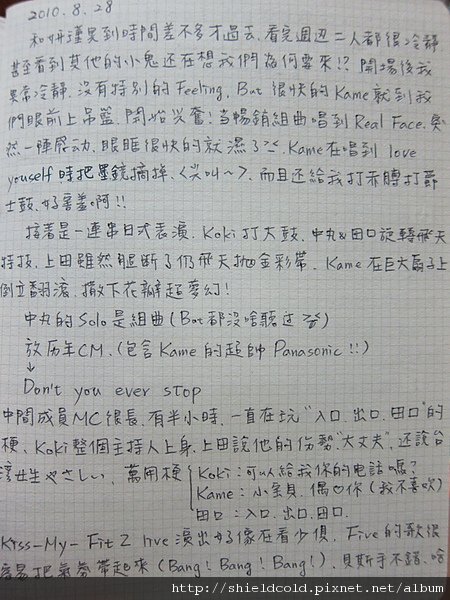 2010.8.28
和妍瑾晃到時間差不多才過去,看完週边二人都很冷靜
甚至看到其他的小鬼还在想我們為何要來!? 開場後我
異常冷靜,沒有特別的Feeling, But 很快的 Kame 就到我
們眼前上吊鋼,開始兴奮!当暢銷組曲唱到 Real Face,突
然一陣感动,眼眶很快的就濕了. Kame在唱到 love
youself 時把墨鏡摘掉、(尖叫~),而且还給我打赤膊打爵
士鼓,好害羞啊!!
接着是一連串日式表演,Koki打大鼓,中丸&田口旋轉飛天
特技,上田雖然腿斷了仍飛天拋金彩帶, Kame 在巨大扇子上
倒立翻滾,撒下花瓣超夢幻!
中丸的Solo是組曲(But都沒啥聽过)
放历年CM,(包含Kame的超帥 Panasonic!!)
↓
Don't you ever stop
中間成員MC很長,有半小時,一直在玩"入口,出口,田口"的
梗、Koki整個主持人上身,上田說他的伤勢"大丈夫",还說台
湾女生やさしい,萬用梗
Koki:可以給我你的電話嗎?
Kame:小宝貝,偶♡你(我不喜欢)
田口:入口,出口,田口.
Kiss-My-Fit 2 live 演出好像在看少俱, Five的歌很
容易把氣勢帶起來(Bang! Bang! Bang!),貝斯手不錯,啥
http://shieldcold.pixnet.net/album